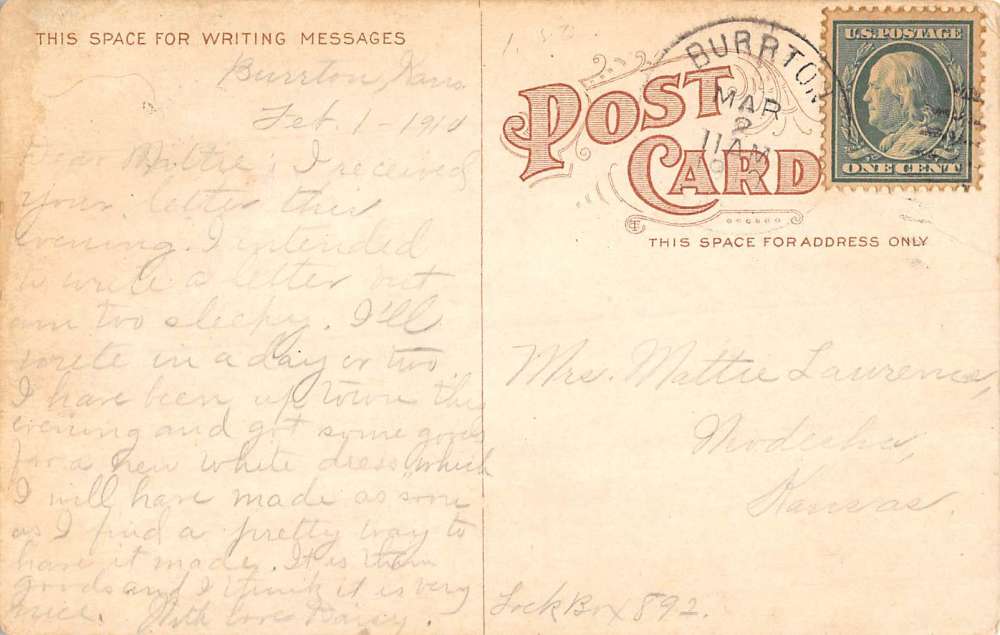 THIS SPACE FOR WRITING MESSAGES
Burrton, Kans.
Feb. 1 - 1910
Dear Mattie; I received
your letter this
evening. I intended
to write a letter but
am too sleepy. I'll
write in a day or two.
I have been up town this
evening and got some goods
for a new white dress which
I will have made as soon
as I find a pretty way to
have it made. It is thin
goods and I think it is very
nice. With love Daisy.
POST CARD
BURRTON
MAR
2
11 AM
U.S. POSTAGE
ONE CENT
THIS SPACE FOR ADDRESS ONLY
Mrs. Mattie Lawrence,
Neodesha,
Kansas.
Lock Box 892.